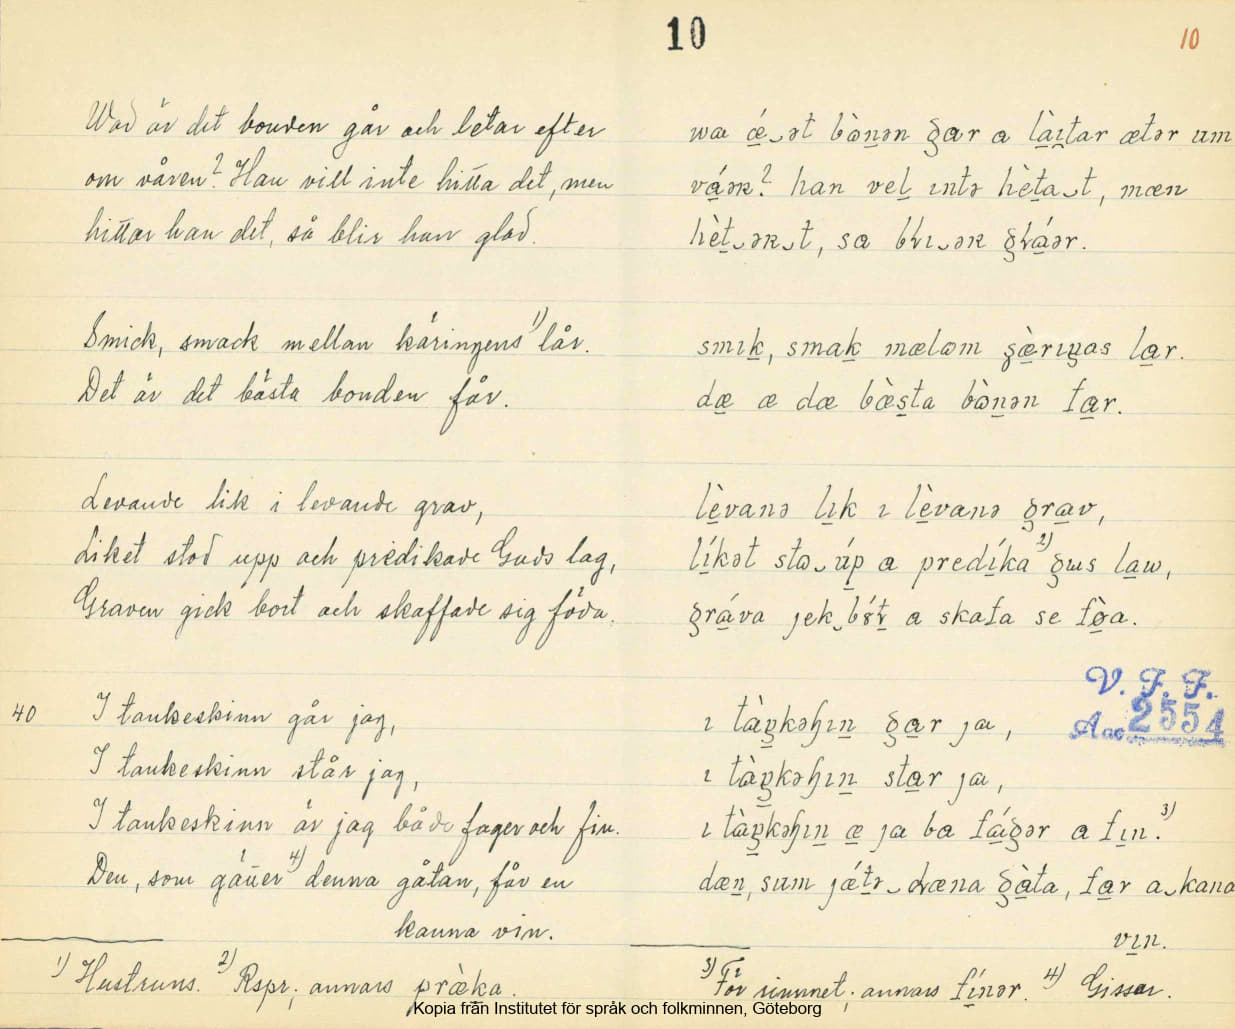 10
10
Vad är det bonden går och letar efter
om våren? Han vill inte hitta det, men
hittar han det, så blir han glad.
Smick, smack mellan käringens 1) lår.
Det är det bästa bonden får.
Levande lik i levande grav,
Liket stod upp och predikade Guds lag,
Graven gick bort och skaffade sig föda.
40 I tankeskinn går jag,
I tankeskinn står jag,
I tankeskinn är jag både fager och fin.
Den, som gätter 4) denna gåtan, får en
kanna vin.
1) Hustruns. 2) Rspr; annars præ̀ka.
wa ǽ‿ət bò̱nən ᶃar a lɑ̀ɪtar ætər um
vɑ́əɴ? han vel ɪntə hèta‿t, mæn
hèt‿əɴ‿t, sa blɪ‿əɴ ᶃlɑ́ər.
smɪk, smak mælɷm ʂæ̀rɪŋas lar.
dæ æ dæ bæ̀sta bɷ̀nən far.
lèvanə lɪk ɪ lèvanə ᶃrav,
líkət stɷ‿úp a predíka 2) ᶃɯs law,
ᶃráva jek‿bɤ́t a skafa se fø̀a.
V. F. F.
Acc 2554
ɪ tàŋkəɧɪn ᶃar ja,
ɪ tàŋkəɧɪn star ja,
ɪ tàŋkəɧɪn æ ja ba fáᶃər a fɪn. 3)
dæn, sum jǽtə‿dæna ᶃɑ̀ta, far a‿kana
vɪn.
3) För rimmet; annars fínər. 4) Gissar.
Kopia från Institutet för språk och folkminnen, Göteborg